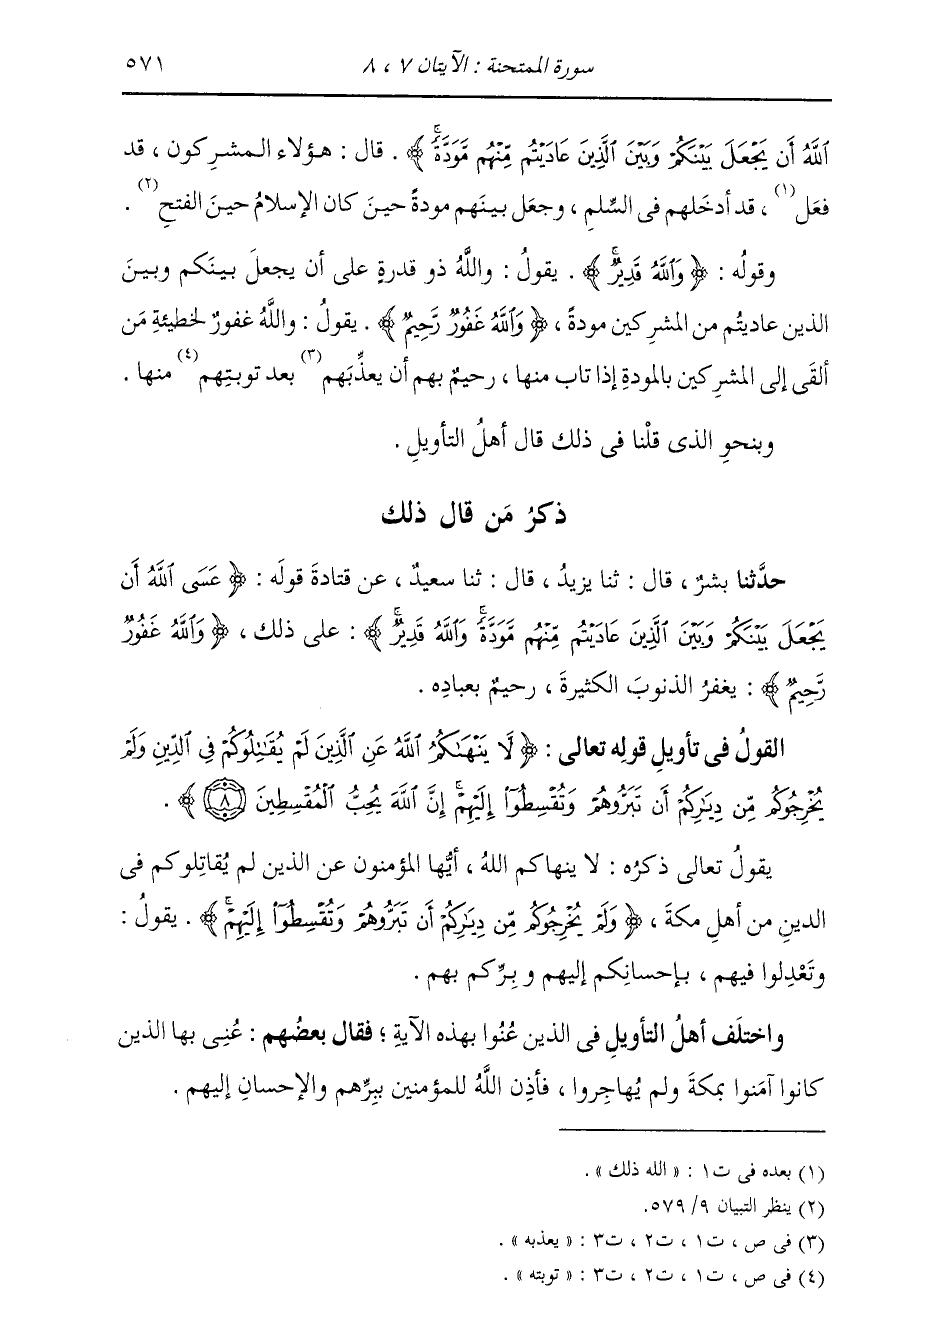 سورة الممتحنة : الآيتان ٧ ، ٨ ٥٧١
ٱللَّهُ أَن يَجْعَلَ بَيْنَكُمْ وَبَيْنَ ٱلَّذِينَ عَادَيْتُم مِّنْهُم مَّوَدَّةًۚ ﴾ . قال : هؤلاء المشركون ، قد
فعَل(١) ، قد أدخَلهم فى السِّلمِ ، وجعَل بينَهم مودةً حينَ كان الإسلامُ حينَ الفتحِ(٢) .
وقولُه : ﴿ وَٱللَّهُ قَدِيرٌۚ ﴾ . يقولُ : واللَّهُ ذو قدرةٍ على أن يجعلَ بينَكم وبينَ
الذين عاديتُم من المشركين مودةً ، ﴿ وَٱللَّهُ غَفُورٌ رَّحِيمٌ ﴾ . يقولُ : واللَّهُ غفورٌ لخطيئةِ مَن
ألقَى إلى المشرِكين بالمودةِ إذا تاب منها ، رحيمٌ بهم أن يعذِّبَهم(٣) بعد توبتِهم(٤) منها .
وبنحوِ الذى قلْنا فى ذلك قال أهلُ التأويلِ .
ذكرُ مَن قال ذلك
حدَّثنا بشرٌ ، قال : ثنا يزيدُ ، قال : ثنا سعيدٌ ، عن قتادةَ قولَه : ﴿ عَسَى ٱللَّهُ أَن
يَجْعَلَ بَيْنَكُمْ وَبَيْنَ ٱلَّذِينَ عَادَيْتُم مِّنْهُم مَّوَدَّةًۚ وَٱللَّهُ قَدِيرٌۚ ﴾ : على ذلك ، ﴿ وَٱللَّهُ غَفُورٌ
رَّحِيمٌ ﴾ : يغفرُ الذنوبَ الكثيرةَ ، رحيمٌ بعبادِه .
القولُ فى تأويلِ قولِه تعالى : ﴿ لَّا يَنْهَىٰكُمُ ٱللَّهُ عَنِ ٱلَّذِينَ لَمْ يُقَٰتِلُوكُمْ فِى ٱلدِّينِ وَلَمْ
يُخْرِجُوكُم مِّن دِيَٰرِكُمْ أَن تَبَرُّوهُمْ وَتُقْسِطُوٓا۟ إِلَيْهِمْۚ إِنَّ ٱللَّهَ يُحِبُّ ٱلْمُقْسِطِينَ ٨ ﴾ .
يقولُ تعالى ذكرُه : لا ينهاكم اللهُ ، أيُّها المؤمنون عن الذين لم يُقاتِلوكم فى
الدينِ من أهلِ مكةَ ، ﴿ وَلَمْ يُخْرِجُوكُم مِّن دِيَٰرِكُمْ أَن تَبَرُّوهُمْ وَتُقْسِطُوٓا۟ إِلَيْهِمْۚ ﴾ . يقولُ :
وتَعْدِلوا فيهم ، بإحسانِكم إليهم وبِرِّكم بهم .
واختلَف أهلُ التأويلِ فى الذين عُنُوا بهذه الآيةِ ؛ فقال بعضُهم : عُنِى بها الذين
كانوا آمَنوا بمكةَ ولم يُهاجِروا ، فأذِن اللَّهُ للمؤمنين ببِرِّهم والإحسانِ إليهم .
(١) بعده فى ت١ : « الله ذلك » .
(٢) ينظر التبيان ٩/ ٥٧٩.
(٣) فى ص ، ت١ ، ت٢ ، ت٣ : « يعذبه » .
(٤) فى ص ، ت١ ، ت٢ ، ت٣ : « توبته » .